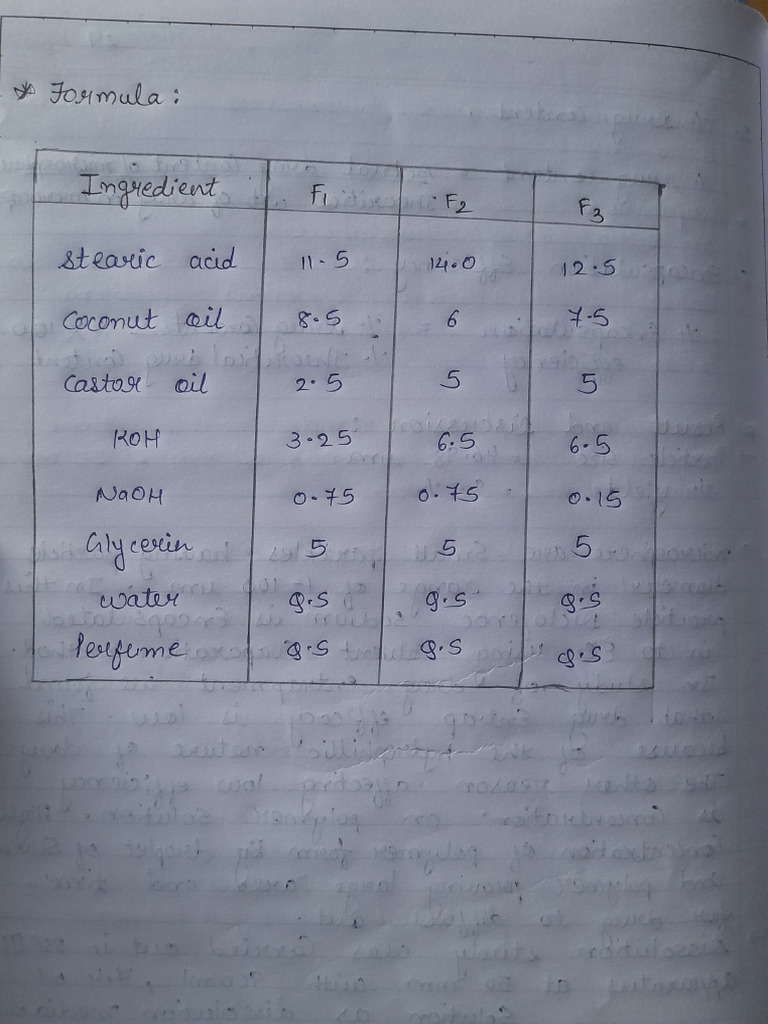 * Formula :
Ingredient F1 F2 F3
Stearic acid 11.5 14.0 12.5
Coconut oil 8.5 6 7.5
Castor oil 2.5 5 5
KOH 3.25 6.5 6.5
NaOH 0.75 0.75 0.15
Glycerin 5 5 5
Water Q.S Q.S Q.S
Perfume Q.S Q.S Q.S